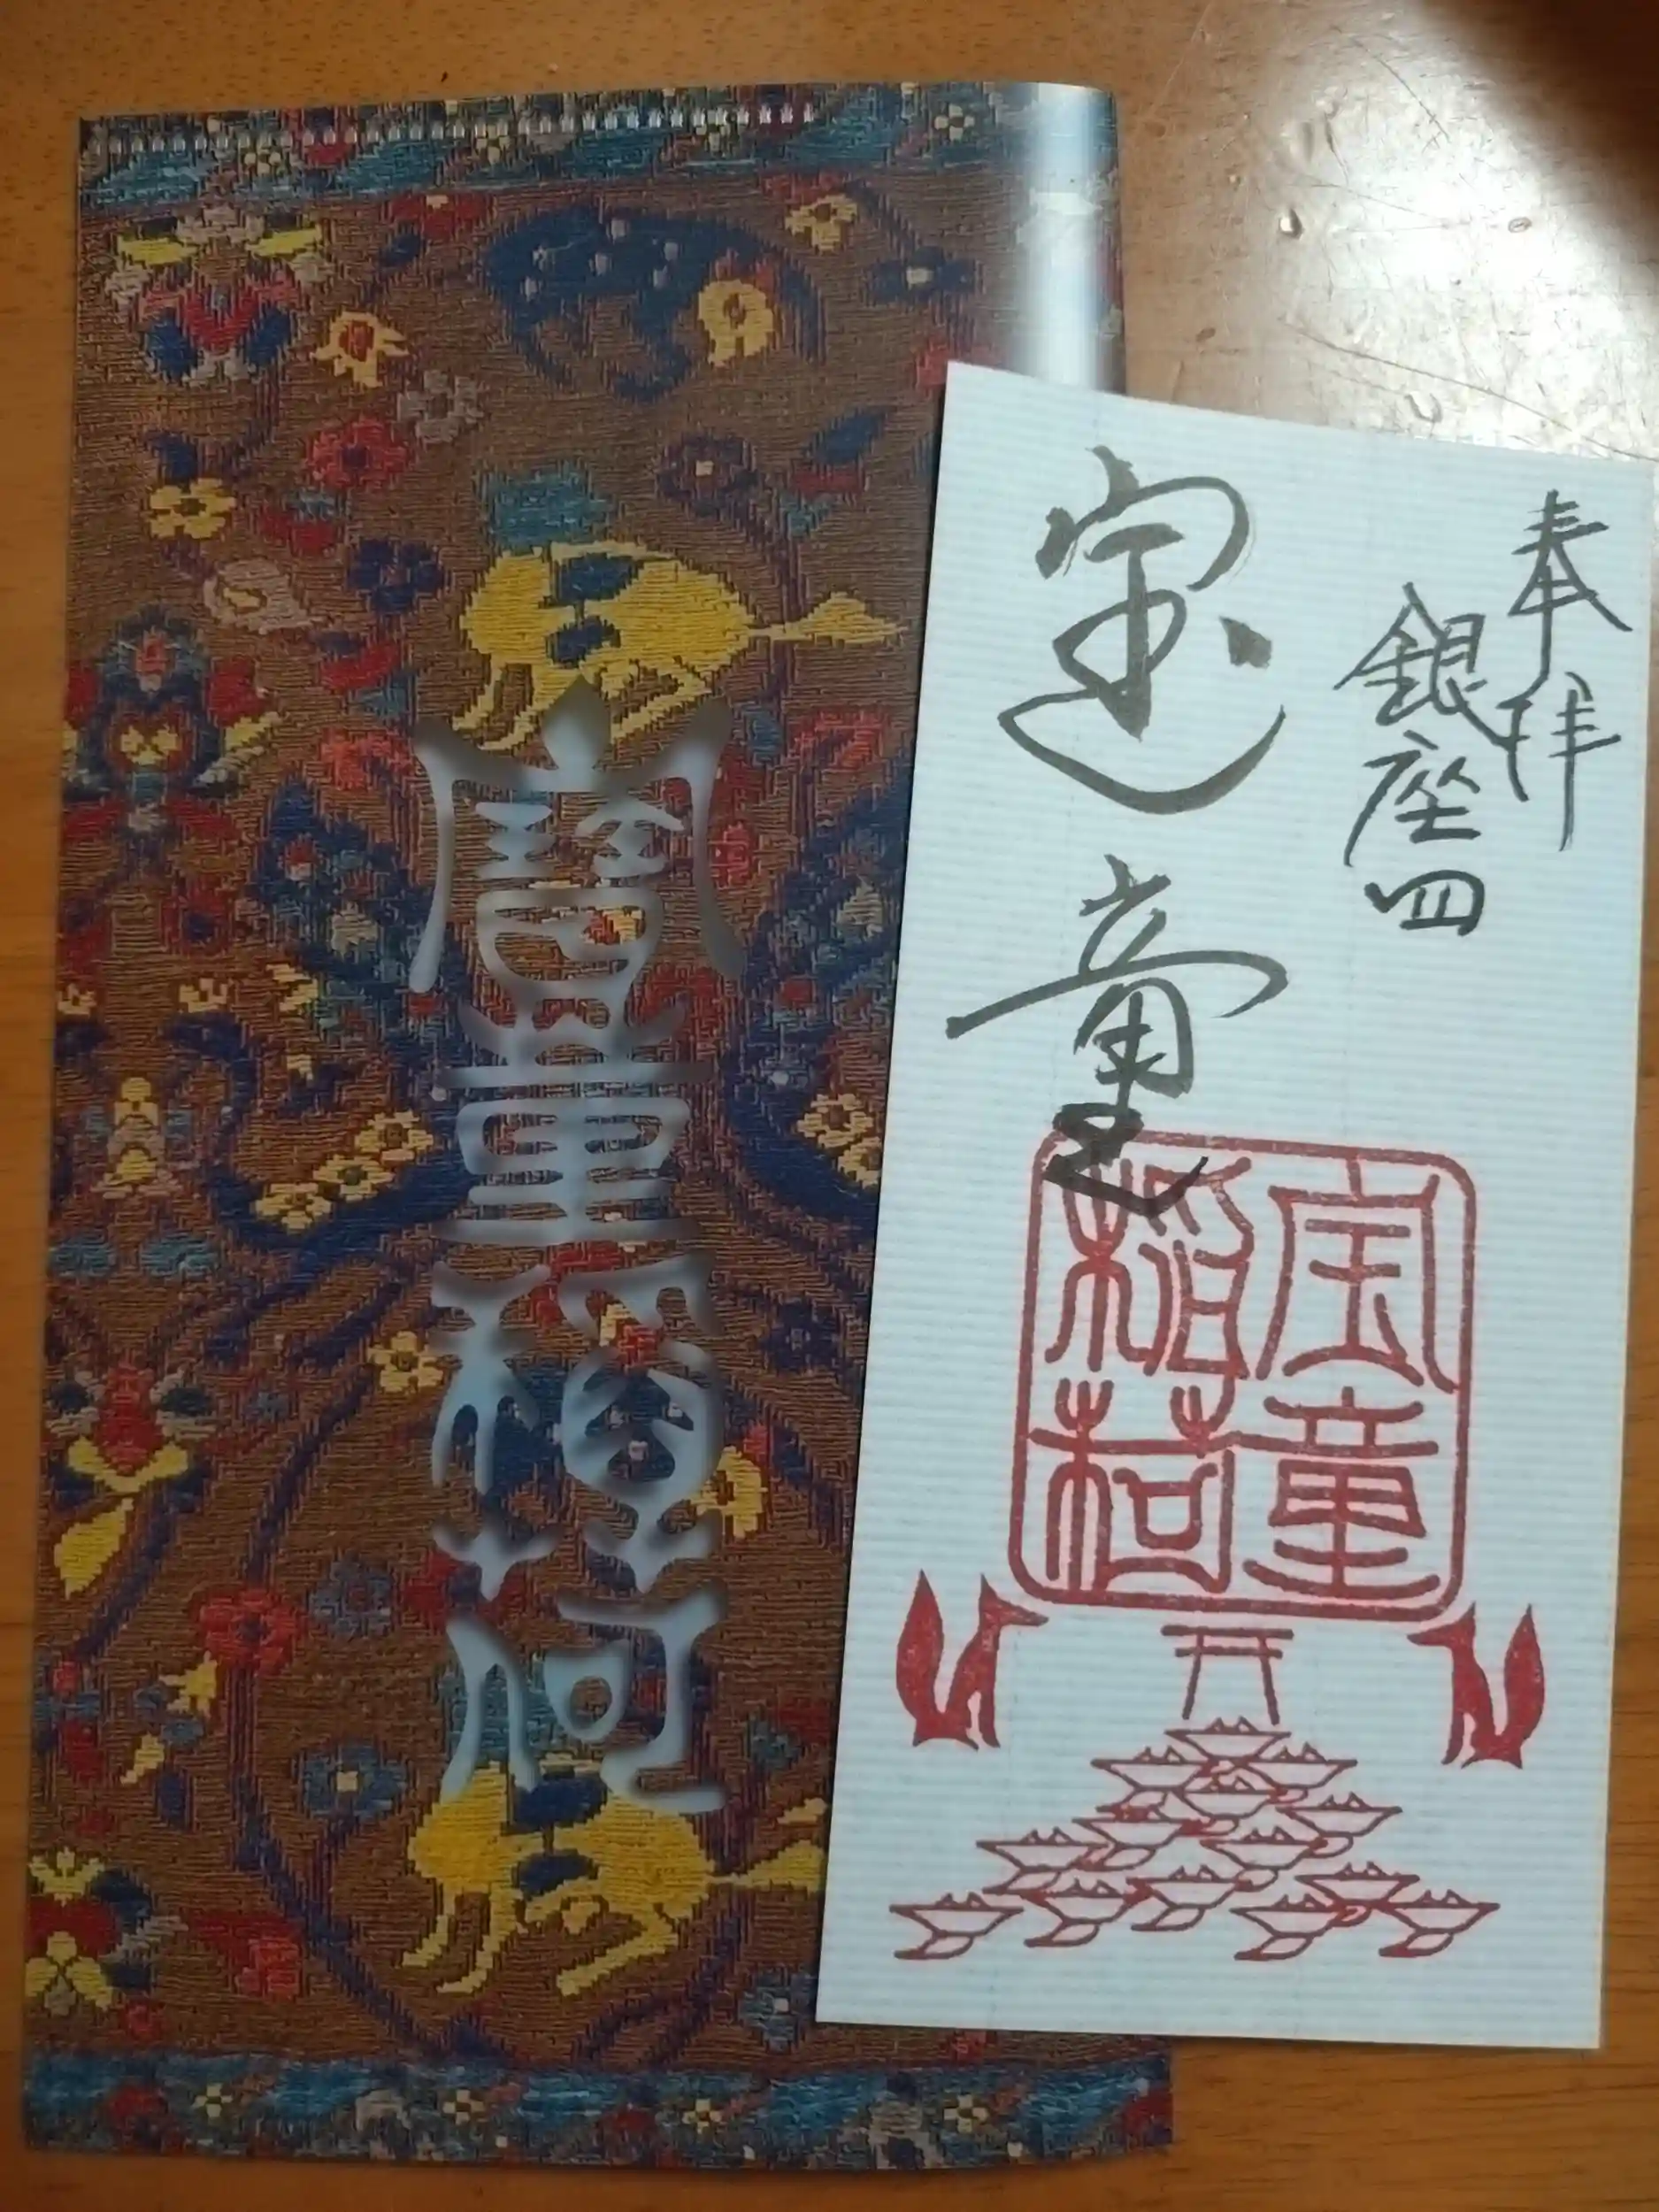 寶童稲荷
奉拝
銀座四
宝童
宝童
稲荷